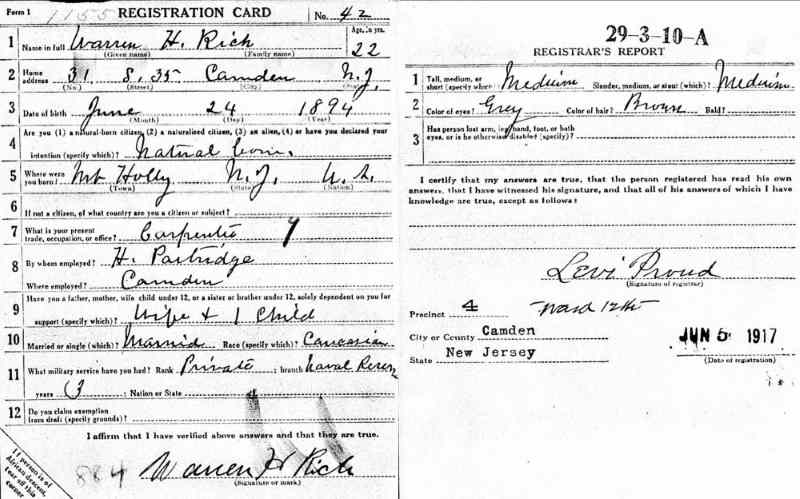 Form 1 1155 REGISTRATION CARD No. 42
1 Name in full Warren H. Rich Age, in yrs. 22
(Given name) (Family name)
2 Home address 31 S. 35 Camden N.J.
(No.) (Street) (City) (State)
3 Date of birth June 24 1894
(Month) (Day) (Year)
4 Are you (1) a natural-born citizen, (2) a naturalized citizen, (3) an alien, (4) or have you declared your
intention (specify which)? Natural born.
5 Where were you born? Mt Holly N.J. U.S.
(Town) (State) (Nation)
6 If not a citizen, of what country are you a citizen or subject?
7 What is your present trade, occupation, or office? Carpenter 7
8 By whom employed? H. Partridge
Where employed? Camden
9 Have you a father, mother, wife child under 12, or a sister or brother under 12, solely dependent on you for
support (specify which)? Wife + 1 Child
10 Married or single (which)? Married Race (specify which)? Caucasian
11 What military service have you had? Rank Private ; branch Naval Reserv
years 3 ; Nation or State
12 Do you claim exemption from draft (specify grounds)?
I affirm that I have verified above answers and that they are true.
884 Warren H Rich
(Signature or mark)
If person is of African descent, tear off this corner
29-3-10-A
REGISTRAR'S REPORT
1 Tall, medium, or short (specify which)? Medium Slender, medium, or stout (which)? Medium
2 Color of eyes? Grey Color of hair? Brown Bald?
3 Has person lost arm, leg, hand, foot, or both eyes, or is he otherwise disabled (specify)?
I certify that my answers are true, that the person registered has read his own
answers, that I have witnessed his signature, and that all of his answers of which I have
knowledge are true, except as follows:
Levi Proud
(Signature of registrar)
Precinct 4 Ward 12th
City or County Camden
State New Jersey
JUN 5 1917
(Date of registration)